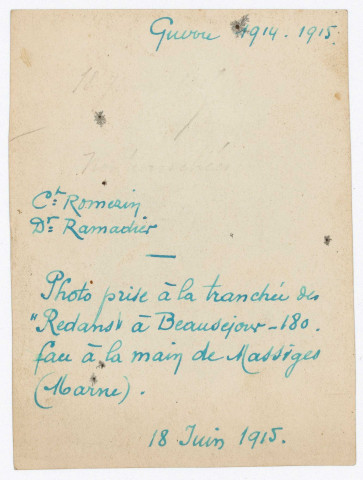 Guerre 1914-1915.
Ct. Romezin
Dr. Ramadier
Photo prise à la tranchée des
"Redans" à Beauséjour - 180.
face à la main de Massiges
(Marne).
18 Juin 1915.